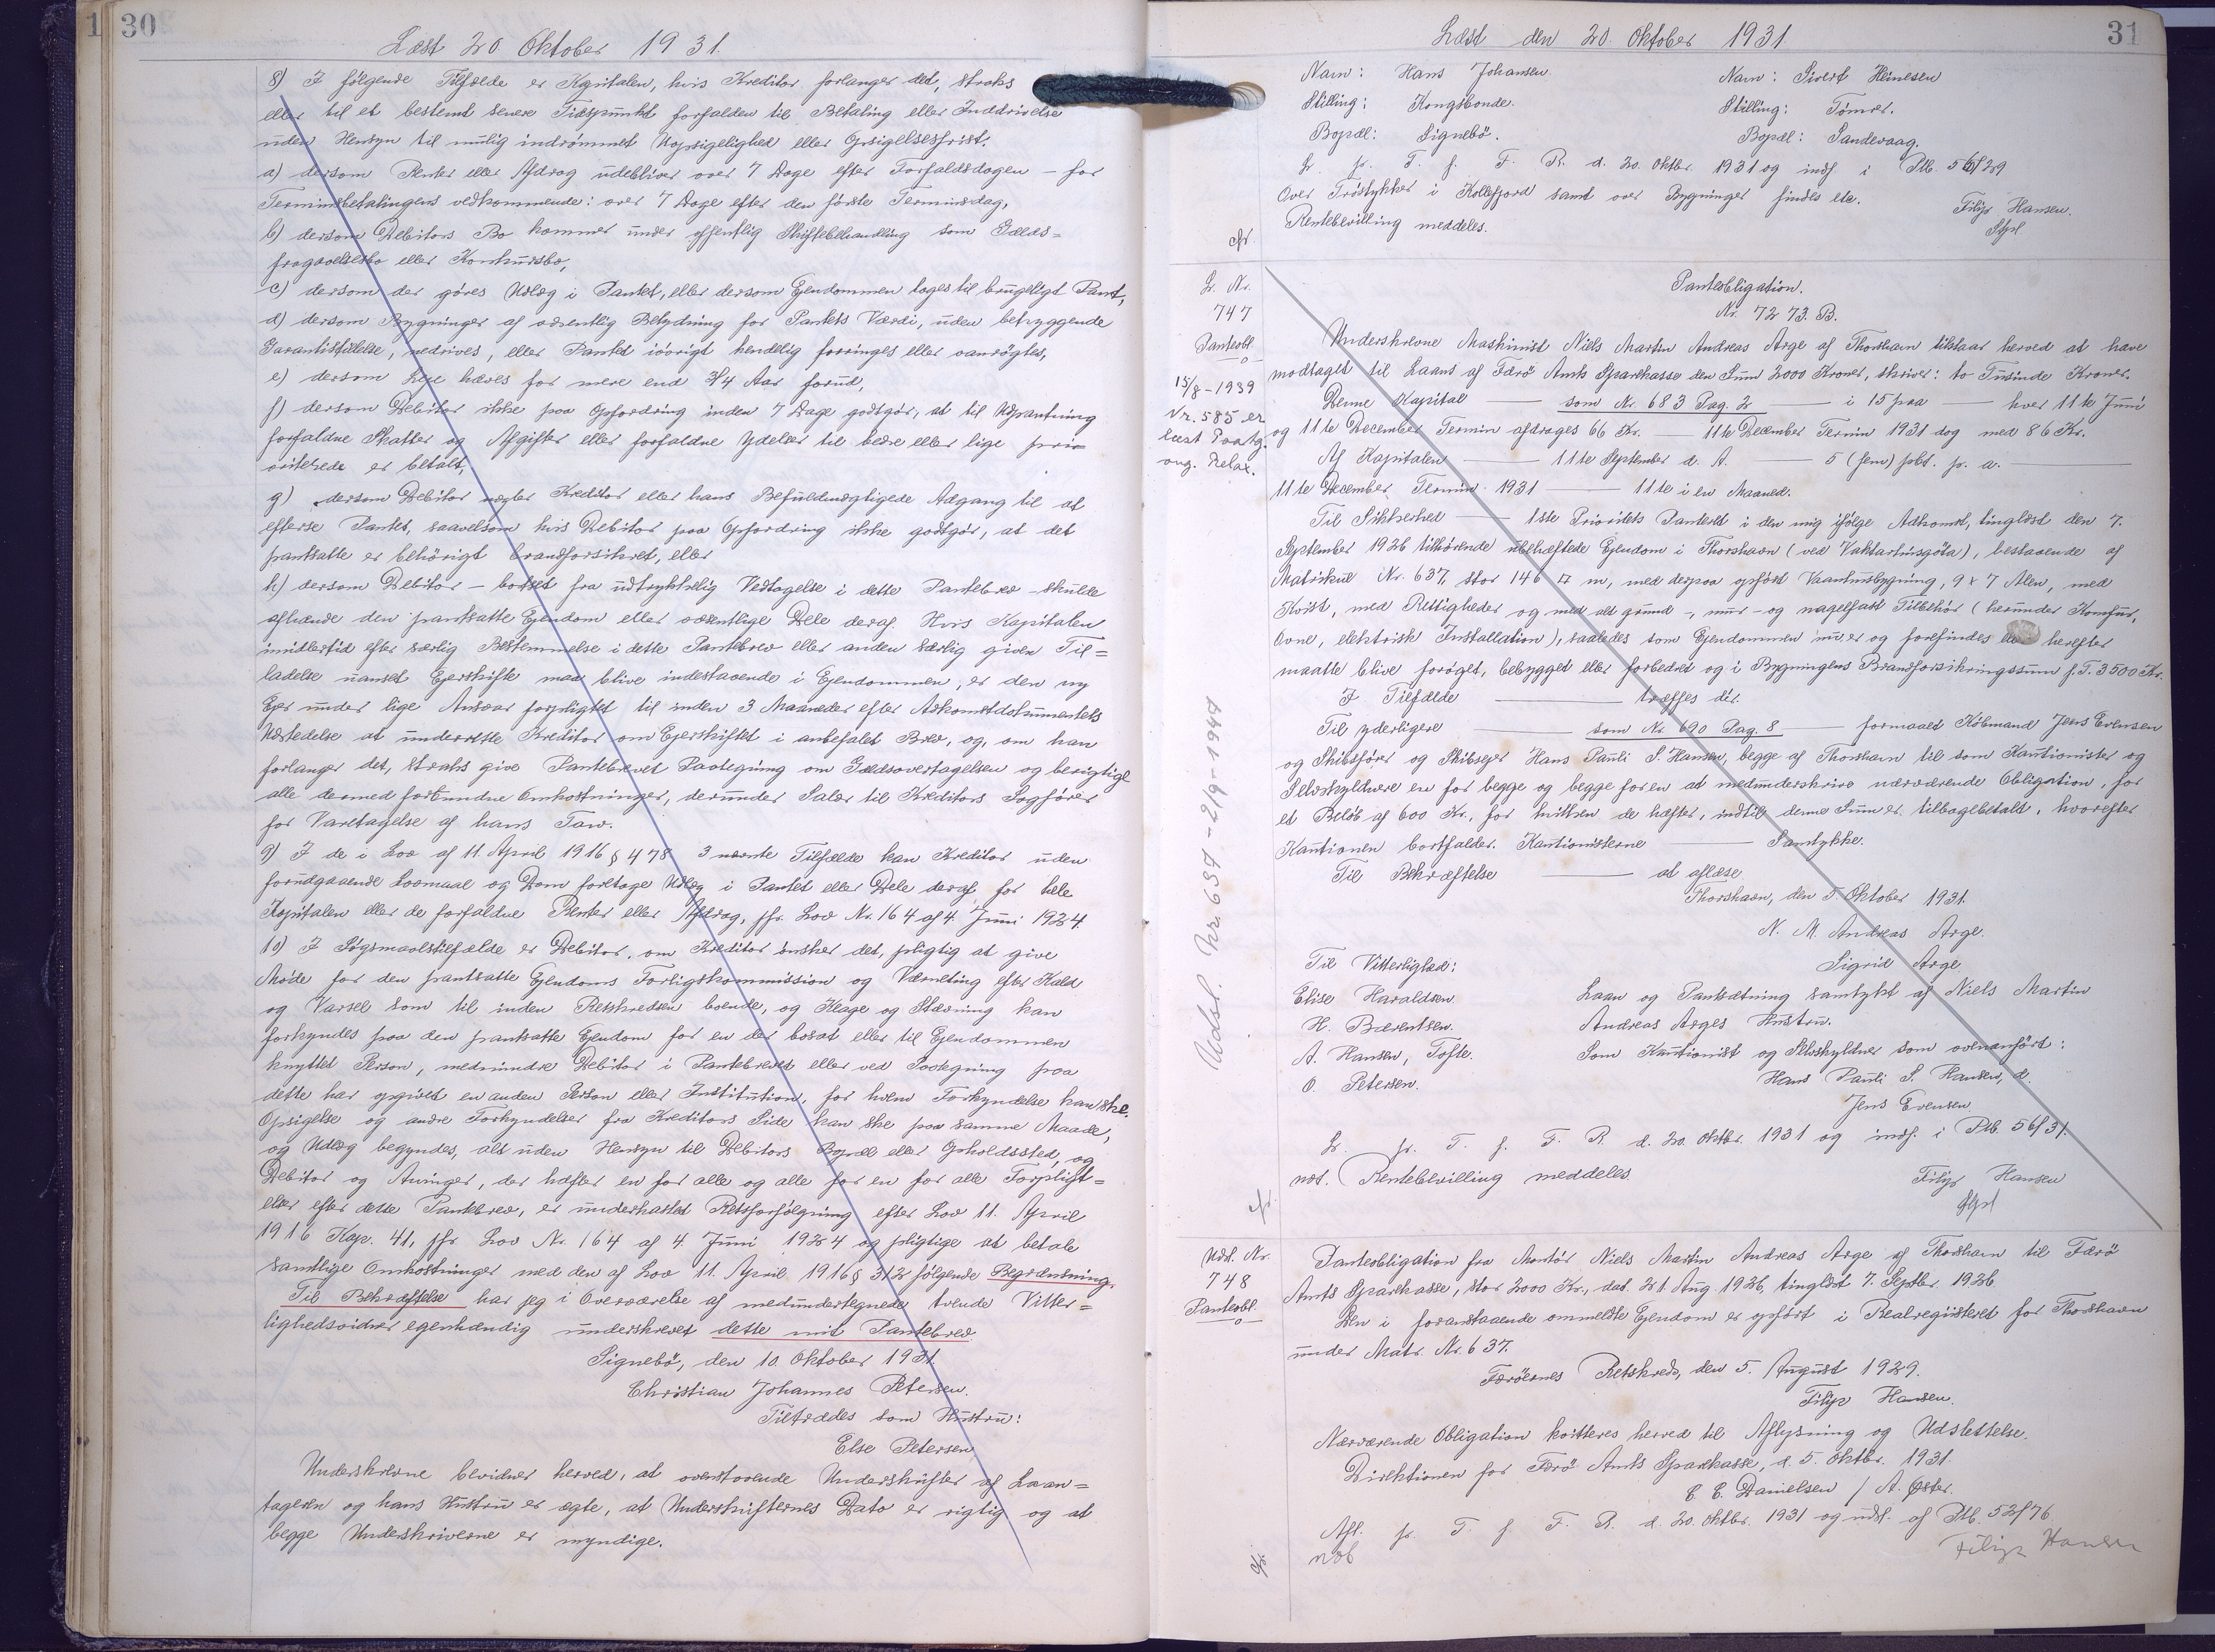 1
30
Læst 20 Oktober 1931.
8) I følgende Tilfælde er Kapitalen, hvis Kreditor forlanger det, straks
eller til et bestemt senere Tidspunkt forfalden til Betaling eller Inddrivelse
uden Hensyn til mulig indrømmet Uopsigelighed eller Opsigelsesfrist.
a) dersom Renter eller Afdrag udebliver over 7 Dage efter Forfaldsdagen – for
Terminsbetalingens vedkommende: over 7 Dage efter den første Terminsdag,
b) dersom Debitors Bo kommer under offentlig Skiftebehandling som Gælds=
fragaaelsesbo eller Konkursbo,
c) dersom der gøres Udlæg i Pantet, eller dersom Ejendommen tages til brugeligt Pant,
d) dersom Bygninger af væsentlig Betydning for Pantets Værdi, uden betryggende
Garantistillelse, nedrives, eller Pantet iøvrigt kendelig forringes eller vanrøgtes,
e) dersom Leje hæves for mere end 3/4 Aar forud,
f) dersom Debitor ikke paa Opfordring inden 7 Dage godtgør, at til Udpantning
forfaldne Skatter og Afgifter eller forfaldne Ydelser til bedre eller lige pri=
oriterede er betalt,
g) dersom Debitor nægter Kreditor eller hans Befuldmægtigede Adgang til at
efterse Pantet, saavelsom hvis Debitor paa Opfordring ikke godtgør, at det
pantsatte er behørigt brandforsikret, eller
h) dersom Debitor – bortset fra udtrykkelig Vedtagelse i dette Pantebrev – skulde
afhænde den pantsatte Ejendom eller væsentlige Dele deraf. Hvis Kapitalen
imidlertid efter særlig Bestemmelse i dette Pantebrev eller anden særlig given Til=
ladelse uanset Ejerskifte maa blive indestaaende i Ejendommen, er den ny
Ejer under lige Ansvar forpligtet til inden 3 Maaneder efter Adkomstdokumentets
Udstedelse at underrette Kreditor om Ejerskiftet i anbefalet Brev, og, om han
forlanger det, straks give Pantebrevet Paategning om Gældsovertagelsen og berigtige
alle dermed forbundne Omkostninger, derunder Salær til Kreditors Sagfører
for Varetagelse af hans Tarv.
9) I de i Lov af 11. April 1916 § 478 3 nævnte Tilfælde kan Kreditor uden
forudgaaende Lovmaal og Dom foretage Udlæg i Pantet eller Dele deraf for hele
Kapitalen eller de forfaldne Renter eller Afdrag, jfr. Lov Nr. 164 af 4. Juni 1924.
10) I Søgsmaalstilfælde er Debitor, om Kreditor ønsker det, pligtig at give
Møde for den pantsatte Ejendoms Forligskommission og Værneting efter Kald
og Varsel som til inden Retskredsen boende, og Klage og Stævning kan
forkyndes paa den pantsatte Ejendom for en der bosat eller til Ejendommen
knyttet Person, medmindre Debitor i Pantebrevet eller ved Paategning paa
dette har opgivet en anden Person eller Institution, for hvem Forkyndelse kan ske.
Opsigelse og andre Forkyndelser fra Kreditors Side kan ske paa samme Maade,
og Udlæg begyndes, alt uden Hensyn til Debitors Bopæl eller Opholdssted, og
Debitor og Arvinger, der hæfter en for alle og alle for en for alle Forpligt=
elser efter dette Pantebrev, er underkastet Retsforfølgning efter Lov 11. April
1916 Kap. 41, jfr. Lov Nr. 164 af 4. Juni 1924 og pligtige at betale
samtlige Omkostninger med den af Lov 11. April 1916 § 312 følgende Begrænsning.
Til Bekræftelse har jeg i Overværelse af medundertegnede tvende Vitter=
lighedsvidner egenhændig underskrevet dette mit Pantebrev.
Signebø, den 10. Oktober 1931.
Christian Johannes Petersen.
Tiltrædes som Hustru:
Else Petersen
Underskrevne bevidner herved, at ovenstaaende Underskrifter af Laan=
tageren og hans Hustru er ægte, at Underskrifternes Dato er rigtig og at
begge Underskriverne er myndige.
31
Læst den 20. Oktober 1931.
Navn: Hans Johansen. Navn: Sivert Heinesen
Stilling: Kongsbonde. Stilling: Tømrer.
Bopæl: Signebø. Bopæl: Sandevaag.
L. p. T. f. F. R. d. 20. Oktbr. 1931 og indf. i Ptb. 56/29
Over Trøstykker i Kollefjord samt over Bygninger findes etc.
Rentebevilling meddeles.
Filip Hansen.
L. Nr.
747
Panteobl.
15/8-1939
Nr. 585 er
læst Paateg.
ang. Relax.
Udsl. Nr. 634 - 2/9-1944
Panteobligation.
Nr. 7273. B.
Underskrevne Maskinist Niels Martin Andreas Arge af Thorshavn tilstaar herved at have
modtaget til Laans af Færø Amts Sparekasse den Sum 2000 Kroner, skriver: to Tusinde Kroner.
Denne Kapital —— som Nr. 683 Pag. 2 —— i 15 paa —— hver 11te Juni
og 11te December Termin afdrages 66 Kr. —— 11te December Termin 1931 dog med 86 Kr.
Af Kapitalen —— 11te September d. A. —— 5 (fem) pCt. p. a. ——
11te December Termin 1931 —— 11te i en Maaned.
Til Sikkerhed —— 1ste Prioritets Panteret i den mig ifølge Adkomst, tinglæst den 7.
September 1926 tilhørende ubehæftede Ejendom i Thorshavn (ved Vaktarhusgøta), bestaaende af
Matrikul Nr. 637, stor 146 □ m, med derpaa opført Vaaningsbygning, 9 x 7 Alen, med
Kvist, med Rettigheder og med alt grund-, mur- og nagelfast Tilbehør (herunder Komfur,
Ovne, elektrisk Installation), saaledes som Ejendommen nu er og forefindes herefter
maatte blive forøget, bebygget eller forbedret og i Bygningens Brandforsikringssum p. T. 3500 Kr.
I Tilfælde —— træffes dér.
Til yderligere —— som Nr. 690 Pag. 8 —— formaaet Købmand Jens Evensen
og Skibsfører og Skibsejer Hans Pauli S. Hansen, begge af Thorshavn til som Kautionister og
Selvskyldnere en for begge og begge for en at medunderskrive nærværende Obligation, for
et Beløb af 600 Kr., for hvilken de hæfter, indtil denne Sum er tilbagebetalt, hvorefter
Kautionen bortfalder. Kautionisterne —— Samtykke.
Til Bekræftelse —— at aflæse
Thorshavn, den 5. Oktober 1931.
N. M. Andreas Arge.
Til Vitterlighed: Sigrid Arge
Elise Haraldsen. Laan og Pantsætning samtykt af Niels Martin
H. Bærentsen. Andreas Arges Hustru.
A. Hansen, Tofte. Som Kautionist og Selvskyldner som ovenanført:
O. Petersen. Hans Pauli S. Hansen, d.
Jens Evensen.
L. p. T. f. F. R. d. 20. Oktbr. 1931 og indf. i Ptb. 56/31.
not. Rentebevilling meddeles.
Filip Hansen
Udsl. Nr.
748
Panteobl.
Panteobligation fra Montør Niels Martin Andreas Arge af Thorshavn til Færø
Amts Sparekasse, stor 2000 Kr., dat. 21 Aug. 1926, tinglæst 7. Septbr. 1926.
Den i foranstaaende ommeldte Ejendom er opført i Realregisteret for Thorshavn
under Matr. Nr. 637.
Færøernes Retskreds, den 5. August 1929.
Filip Hansen.
Nærværende Obligation kvitteres herved til Aflysning og Udslettelse.
Direktionen for Færø Amts Sparekasse, d. 5. Oktbr. 1931.
C. C. Danielsen / A. Øster.
Afl. p. T. f. F. R. d. 20. Oktbr. 1931 og udsl. af Ptb. 52/76
Filip Hansen